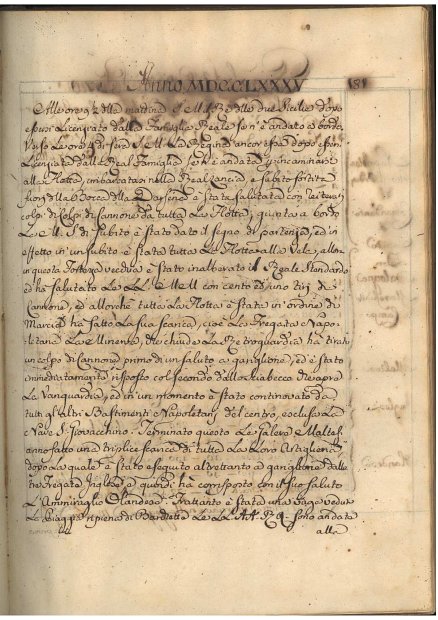 Anno MDCCLXXXV
Alle ore 9½ della mattina S. M. il Re delle due Sicilie dopo
essersi Licenziato dalla Famiglia Reale se n'è andato a bordo,
Verso Le ore di sera S. M. La Regina ancor essa dopo essersi
Licenziata dalla Real Famiglia se n'è andata
alla Flotta, imbarcatasi nella Real Lancia, e subito sortita
fuori della Bocca della Darsina è Stata Salutata con
colpi di Cannone da tutta La Flotta, giunta a bordo
La M. S. di Subito è Stato dato il Segno di partenza, ed in
effetto in un Subito è Stata tutta La Flotta alla Vela, allora
in questa Fortezza vecchia è Stato inalberato il Reale Stendardo
ed ha Salutato Le LL. MM. con cento ed uno tiri di
Cannone, ed allorchè tutta La Flotta è Stata in ordine di
Marcia ha fatto La Sua Scarica, cioè La Fregata Napo-
litana La Minerva, che chiude La Retroguardia ha tirato
un colpo di Cannone primo di un Saluto a ganiglione, ed è Stato
immediatamente risposto col Secondo dallo Sciabecco che apre
La Vanguardia, ed in un momento è Stato continovato da
tutti gl'altri Bastimenti Napoletani del centro, esclusa La
Nave S. Giovacchino. Terminato questo Le Galere Maltesi
anno fatto una triplice Scarica di tutta La Loro Artiglieria,
dopo La quale è Stato eseguito altrettanto a ganiglione dalle
tre Fregate Inglesi e quindi ha corrisposto con il Suo Saluto
L'Ammiraglio Olandese. Frattanto è Stata una vaga veduta
La Spiaggia ripiena di Barchette Le LL. AA. RR. Sono andate
alla